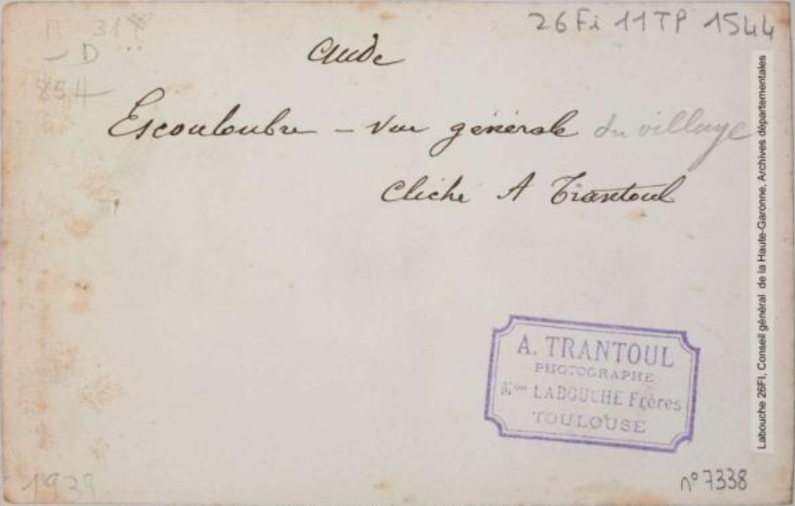 26 Fi 11 TP 1544
D
854
Aude
Escouloubre - Vue générale du village
Cliché A Trantoul
A. TRANTOUL
PHOTOGRAPHE
Mon LABOUCHE Frères
TOULOUSE
n° 7338
1939
Labouche 26FI, Conseil général de la Haute-Garonne, Archives départementales